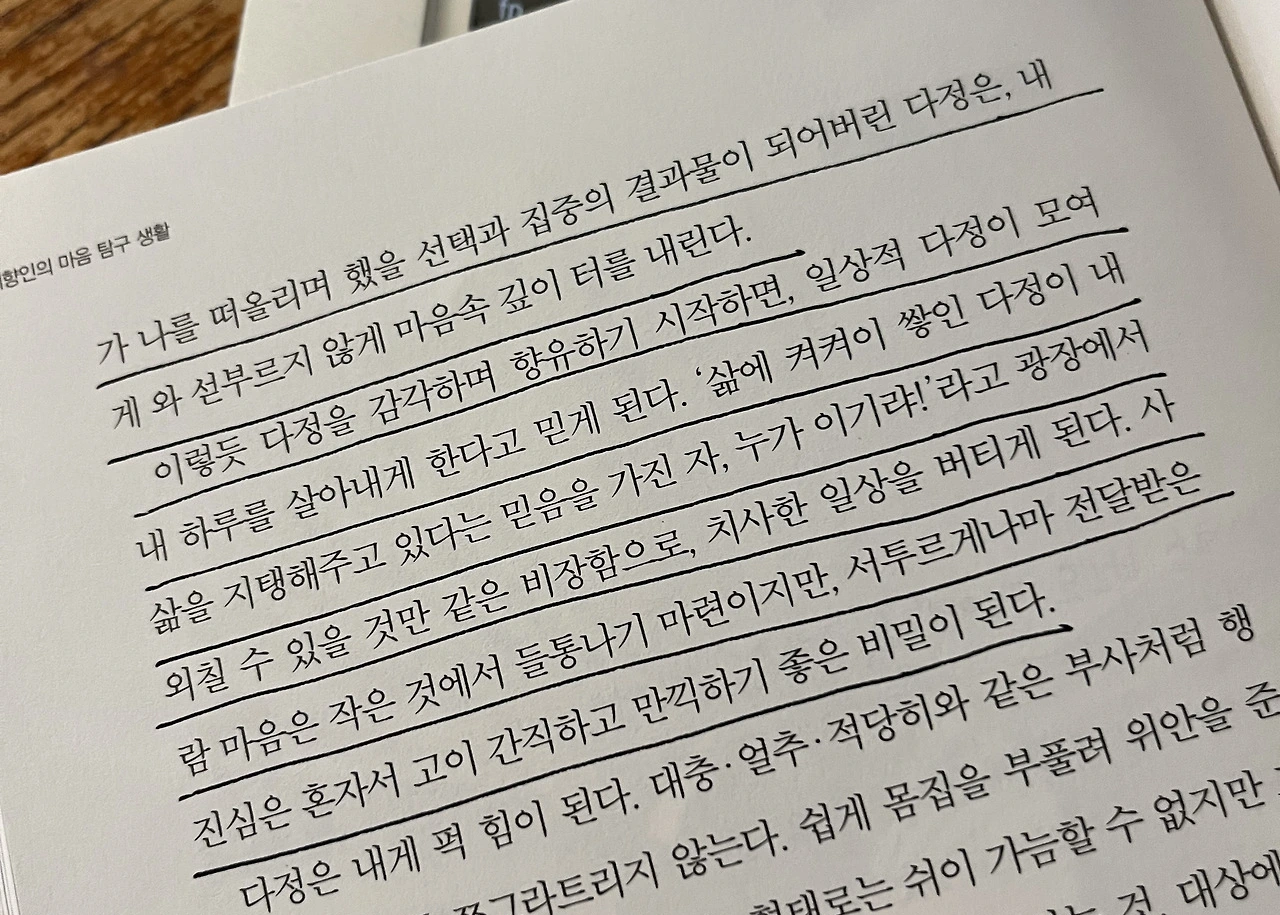 향인의 마음 탐구 생활
가 나를 떠올리며 했을 선택과 집중의 결과물이 되어버린 다정은, 내
게 와 섣부르지 않게 마음속 깊이 터를 내린다.
이렇듯 다정을 감각하며 향유하기 시작하면, 일상적 다정이 모여
내 하루를 살아내게 한다고 믿게 된다. ‘삶에 켜켜이 쌓인 다정이 내
삶을 지탱해주고 있다는 믿음을 가진 자, 누가 이기랴!’라고 광장에서
외칠 수 있을 것만 같은 비장함으로, 치사한 일상을 버티게 된다. 사
람 마음은 작은 것에서 들통나기 마련이지만, 서투르게나마 전달받은
진심은 혼자서 고이 간직하고 만끽하기 좋은 비밀이 된다.
다정은 내게 퍽 힘이 된다. 대충·얼추·적당히와 같은 부사처럼 행
않는다. 쉽게 몸집을 부풀려 위안을 준
형태로는 쉬이 가늠할 수 없지만
것, 대상에